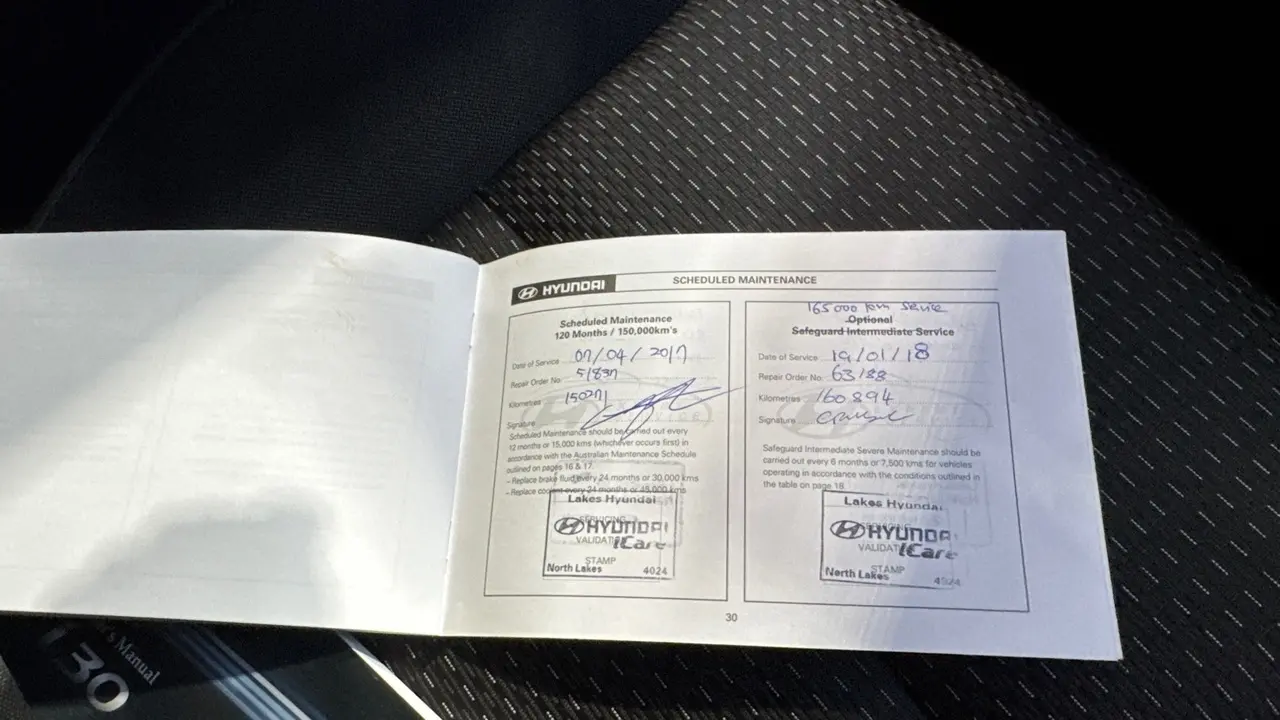 HYUNDAI
SCHEDULED MAINTENANCE
Scheduled Maintenance
120 Months / 150,000km's
Date of Service 07/04/2017
Repair Order No. 51837
Kilometres 150271
Signature
Scheduled Maintenance should be carried out every
12 months or 15,000 kms (whichever occurs first) in
accordance with the Australian Maintenance Schedule
outlined on pages 16 & 17.
– Replace brake fluid every 24 months or 30,000 kms
– Replace coolant every 24 months or 45,000 kms
Lakes Hyundai
SERVICING
HYUNDAI
VALIDATION
iCare
STAMP
North Lakes 4024
165000 km Service
Optional
Safeguard Intermediate Service
Date of Service 19/01/18
Repair Order No. 63188
Kilometres 160894
Signature
Safeguard Intermediate Severe Maintenance should be
carried out every 6 months or 7,500 kms for vehicles
operating in accordance with the conditions outlined in
the table on page 18.
Lakes Hyundai
SERVICING
HYUNDAI
VALIDATION
iCare
STAMP
North Lakes 4024
30
's Manual
i30